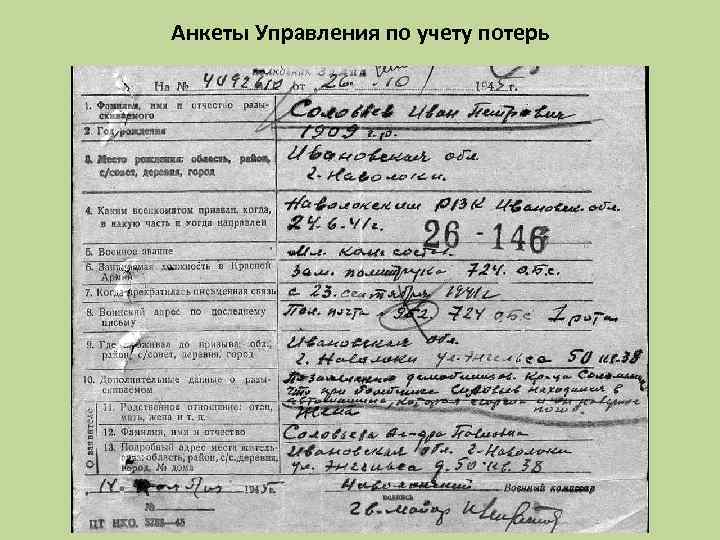 Анкеты Управления по учету потерь
На № 4092610 от 26. 10 1945 г.
1. Фамилия, имя и отчество разыскиваемого
Соловьев Иван Петрович
2. Год рождения
1909 г.р.
3. Место рождения: область, район, с/совет, деревня, город
Ивановская обл
г. Наволоки.
4. Каким военкоматом призван, когда,
в какую часть и когда направлен
Наволокским РВК Ивановск. обл.
24.6.41г.
26-146
5. Военное звание
Мл. ком. сост.
6. Занимаемая должность в Красной
Армии
Зам. политрука 724. о.б.с.
7. Когда прекратилась письменная связь
с 23. сентября 1941г
8. Воинский адрес по последнему
письму
Пол. почта 962 724 ОБС 1 рота
9. Где проживал до призыва: обл.,
район, с/совет, деревня, город
Ивановская обл
г. Наволоки ул. Энгельса 50 кв. 38
10. Дополнительные данные о разыскиваемом
что при Соловьев находился в
автомашине, которая сгорела и он
О заявителе
11. Родственное отношение: отец,
мать, жена и т.п.
Жена
12. Фамилия, имя и отчество
Соловьева Ал-дра Павловна
13. Подробный адрес места жительства: область, район, с/с, деревня,
город, № дома
Ивановская обл. г. Наволоки
ул. Энгельса д. 50 кв. 38
14. 1945 г.
Наволокский Военный комиссар
№
подпись
Гв. майор
ЦТ НКО. 3788—45